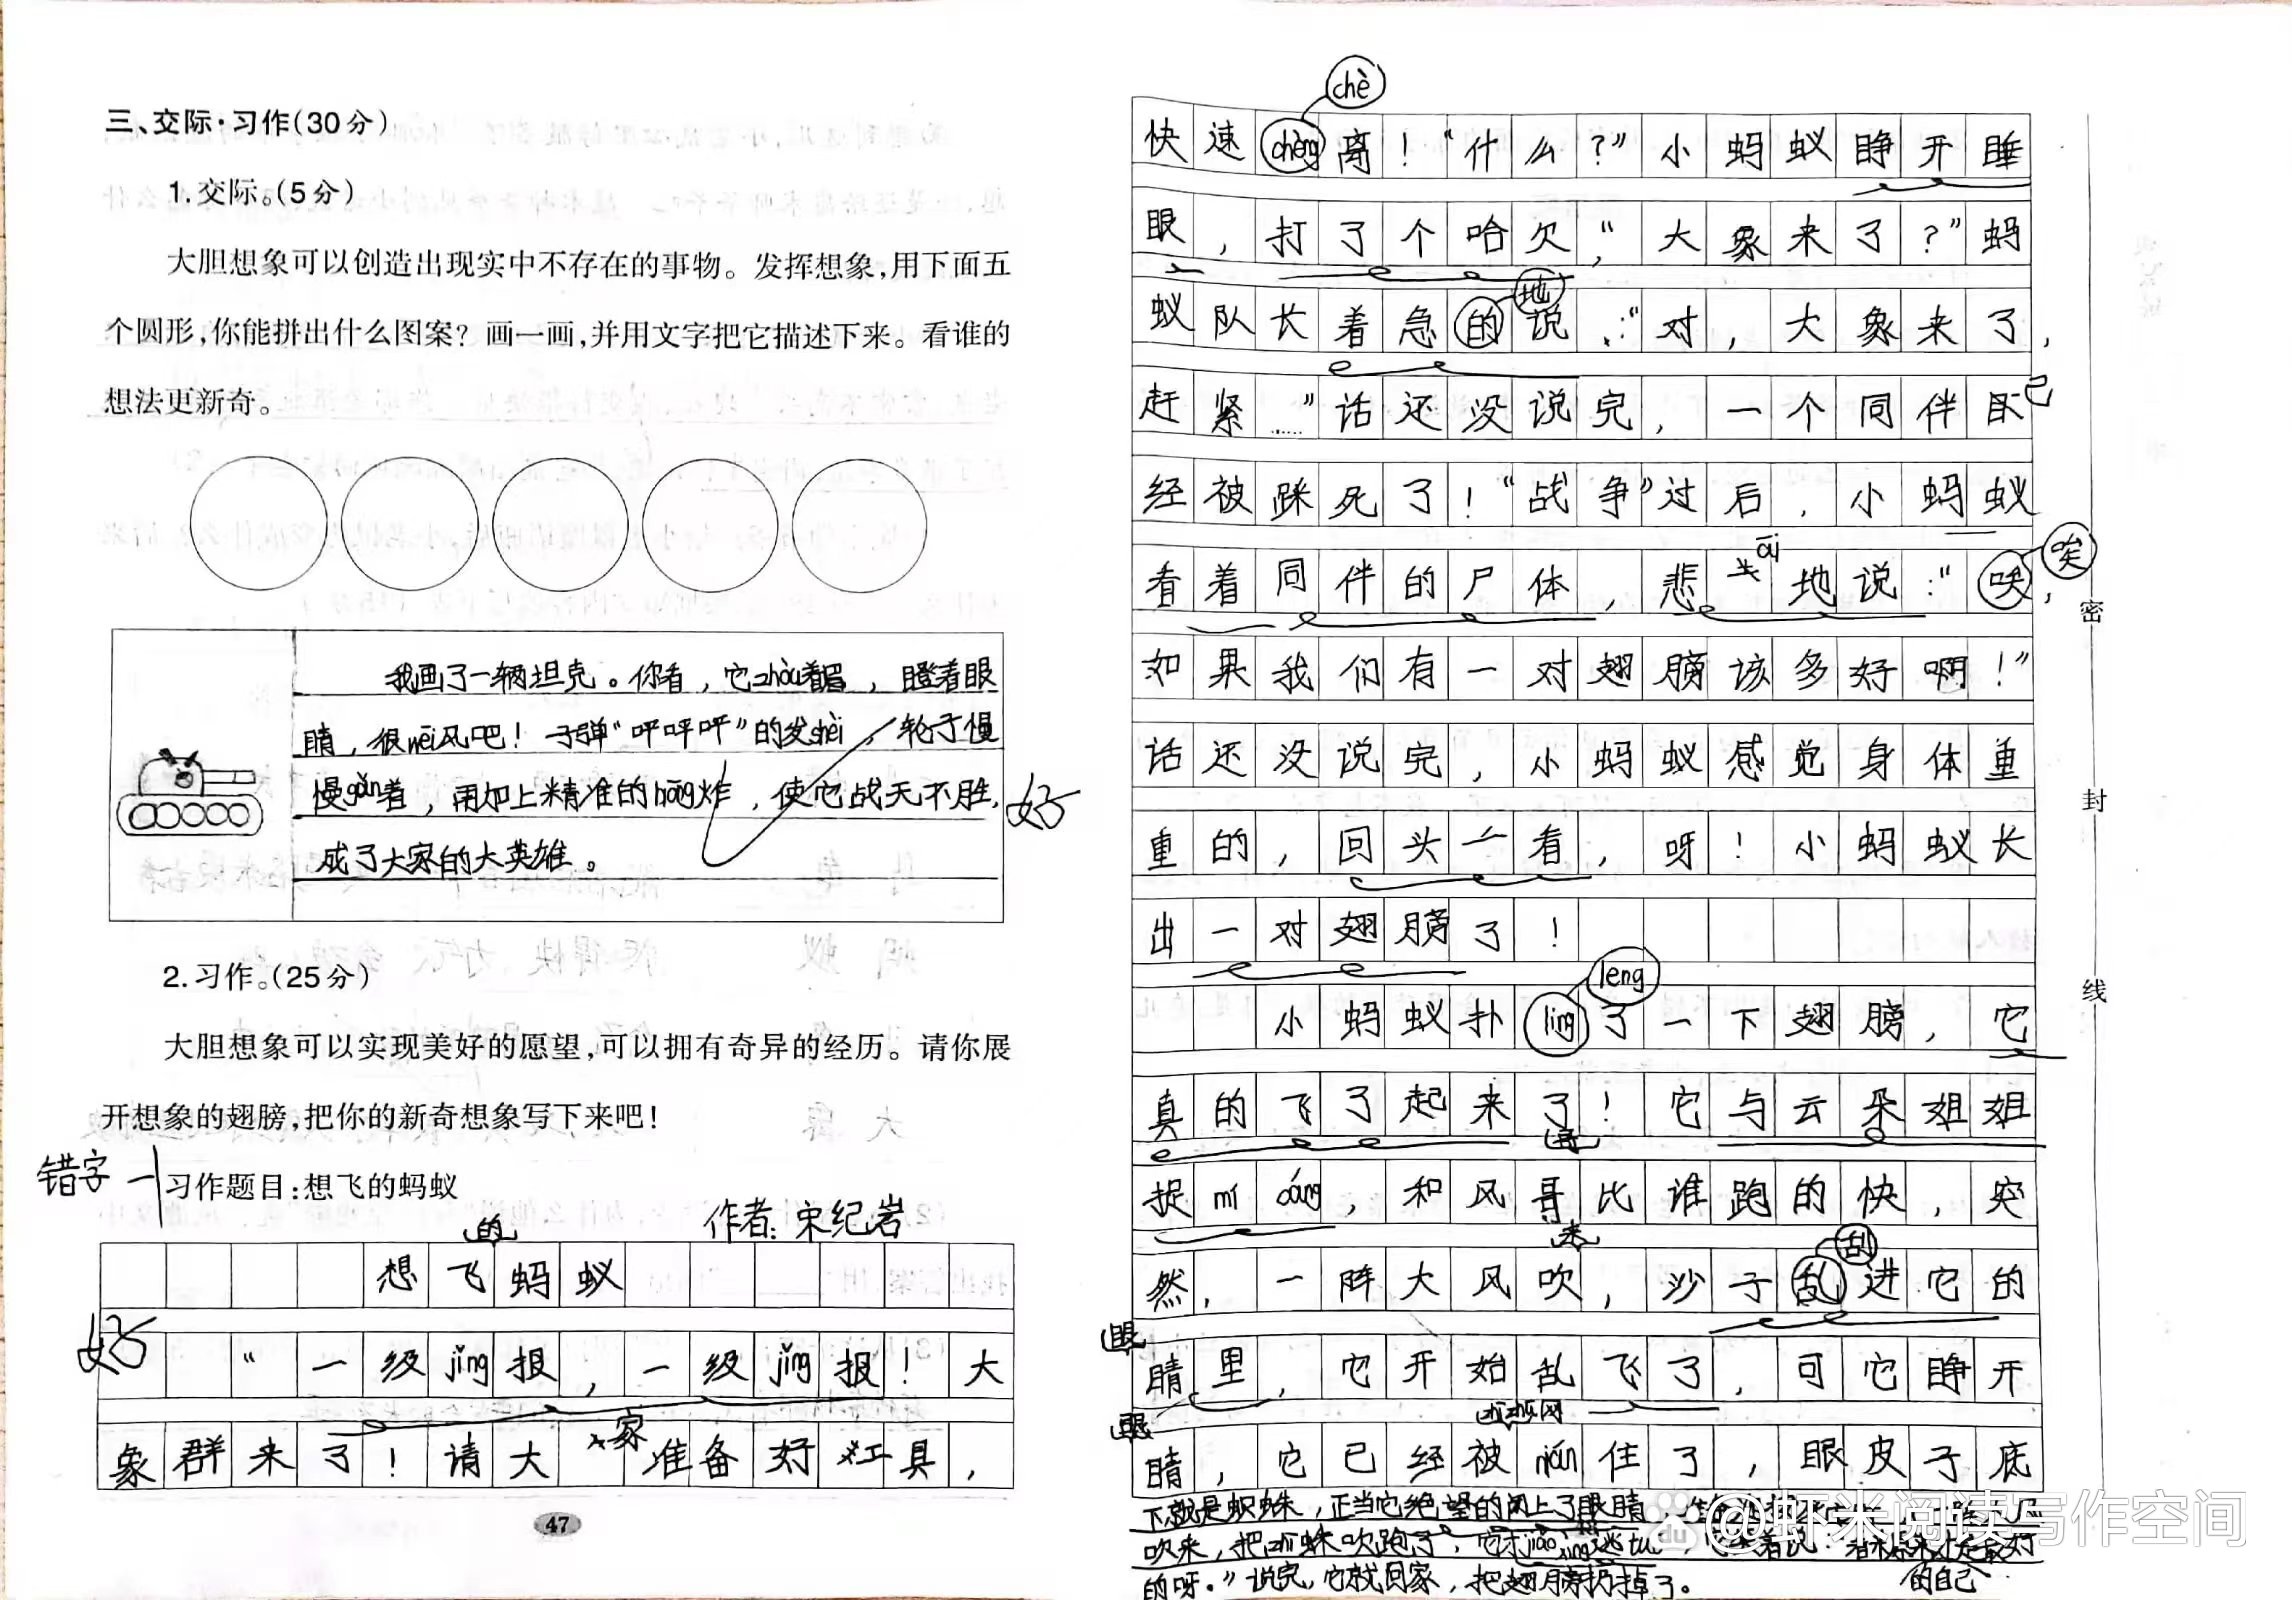 三、交际·习作(30分)
1.交际。(5分)
大胆想象可以创造出现实中不存在的事物。发挥想象,用下面五
个圆形,你能拼出什么图案？画一画,并用文字把它描述下来。看谁的
想法更新奇。
我画了一辆坦克。你看，它zhòu着眉，瞪着眼
睛，很wēi风吧！子弹“呯呯呯”的发shè，轮子慢
慢gǔn着，再加上精准的hōng炸，使它战无不胜，
成了大家的大英雄。
好
2.习作。(25分)
大胆想象可以实现美好的愿望,可以拥有奇异的经历。请你展
开想象的翅膀,把你的新奇想象写下来吧！
错字
习作题目:想飞的蚂蚁
作者：宋纪岩
的
想飞蚂蚁
好
“一级jǐng报，一级jǐng报！大
象群来了！请大家准备好工具，
47
chè
快速chèng离！“什么？”小蚂蚁睁开睡
眼，打了个哈欠，“大象来了？”蚂
地
蚁队长着急的说：“对，大象来了，
赶紧……”话还没说完，一个同伴已
经被踩死了！“战争”过后，小蚂蚁
āi
唉
看着同伴的尸体，悲地说：“唉，
如果我们有一对翅膀该多好啊！”
话还没说完，小蚂蚁感觉身体重
重的，回头一看，呀！小蚂蚁长
出一对翅膀了！
leng
小蚂蚁扑ling了一下翅膀，它
真的飞了起来了！它与云朵姐姐
哥
捉mí cáng，和风哥比谁跑的快，突
来
刮
然，一阵大风吹，沙子乱进它的
眼
睛里，它开始乱飞了，可它睁开
眼
睛，它已经被nián住了，眼皮子底
下就是蜘蛛，正当它绝望的闭上了眼睛
吹来，把zhī蛛吹跑了，它
的呀。”说完，它就回家，把翅膀扔掉了。
的自己
密
封
线
@虾米阅读写作空间